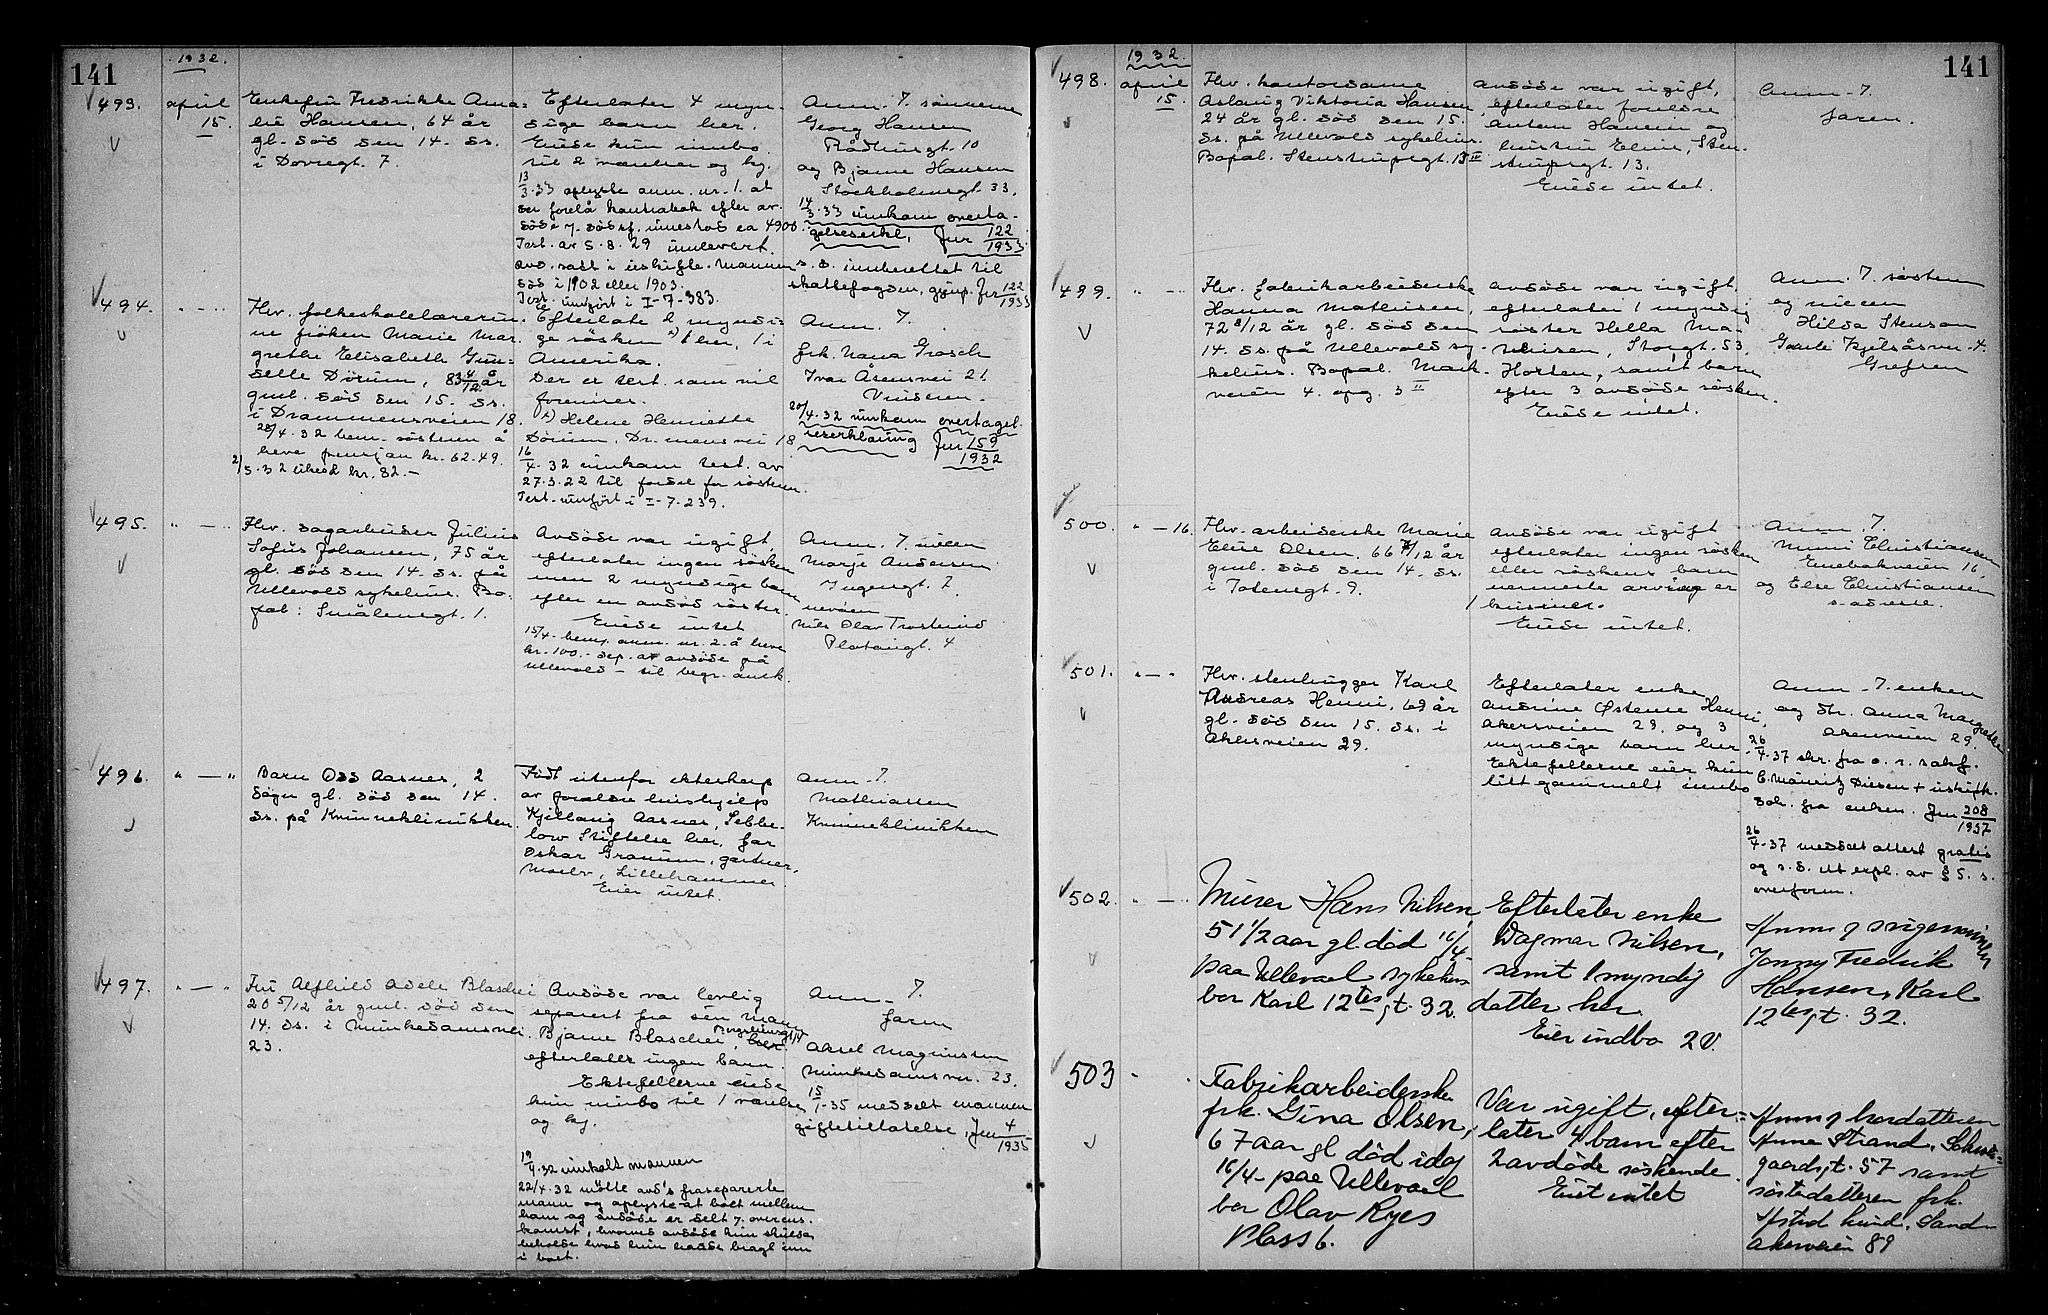 141
1932.
493.
april
15.
Enkefru Fredrikke Ama-
lie Hansen, 64 år
gl. död den 14. ds.
i Dovregt. 7.
Efterlater 4 myn-
dige barn her.
Eiede kun innbo
til 2 værelser og kj.
13/3.33 oplyste anm. nr. 1. at
der forelå kontrabok efter av-
döde
Test. av 5.8.29 innlevert.
avd. satt i uskifte. Mannen
död i 1902 eller 1903.
Test. innfört i I-7-383.
Anm. 7. sönnerne
Georg Hansen
Rådhusgt. 10
og Bjarne Hansen
Stockholmsgt. 33.
14/3.33 innkom overta-
gelseserkl. Jnr 122/1933
s. d. innberettet til
skattefogden, Jnr 122/1933
494.
" — "
Hv. folkeskolelærerin-
ne fröken Marie Mar-
grethe Elisabeth Gun-
delle Dörum, 83 år
gml. död den 15. ds.
i Drammensveien 18.
28/4.32 bem. söstern å
heve pensjon kr. 62.49.
2/5.32 likeså kr. 82.-
Efterlater 2 myndi-
ge sösken x) 1 her, 1 i
Amerika.
Der er test. som vil
forefinnes.
x) Helene Henriette
Dörum, Dr.mensvei 18
16/4.32 innkom test. av
27.3.22 til fordel for söstern.
Test. innfört i I-7-239.
Anm. 7.
frk. Nana Grosch
Ivar Åsensvei 21.
Vinderen.
20/4.32 innkom overtagel-
seserklæring Jnr 159/1932
495.
" — "
Hv. sagarbeider Julius
Sofus Johansen, 75 år
gl. död den 14. ds. på
Ullevold sykehus. Bo-
pæl: Smålensgt. 1.
Avdöde var ugift
efterlater ingen sösken
men 2 myndige barn
efter en avdöd söster.
Eiede intet
15/4. bemy. anm. nr. 2. å heve
kr. 100.- dep. av avdöde på
Ullevold - til begr. omk.
Anm. 7. niecen
Marje Andersen
Jugengt. 2
nevöen
Nils Olav Trosterud
Platougt. 4
496.
" — "
Barn Odd Aasnes, 2
dager gl. död den 14.
ds. på Kvinneklinikken.
Födt utenfor ekteskap
av foreldre hushjelp
Kjellaug Aasnes, Sebbe-
low Stiftelse her, far
Oskar Granum, gartner,
Moelv, Lillehammer.
Eier intet.
Anm. 7.
Mathiassen
Kvinneklinikken
497.
" — "
Fru Alfhild Adele Blaschei
20 5/12 år gml. död den
14. ds. i Munkedamsvei.
23.
Avdöde var lovlig
separert fra sin mann
Bjarne Blaschei,
efterlater ingen barn.
Ektefellerne eiede
kun innbo til 1 værelse
og kj.
19/4.32 innkalt mannen
22/4.32 mötte avd's fraseparerte
mann og oplyste at boet mellem
ham og avdöde er delt 7. overens-
komst, hvorved avdöde kun skulde
beholde hvad hun hadde bragt inn
i boet.
Anm. 7.
faren
Aksel Magnussen
Munkedamsvn. 23.
15/1-35 meddelt mannen
giftetillatelse, Jnr 4/1935
141
1932.
498.
april
15.
Hv. kontordame
Aslaug Viktoria Hansen
24 år gl. död den 15.
ds. på Ullevold sykehus.
Bopæl. Stenstrupsgt. 13 II
Avdöde var ugift,
efterlater foreldre
Anton Hansen og
hustru Eline, Sten-
strupsgt. 13.
Eiede intet.
Anm. 7.
faren.
499.
" — "
Hv. fabrikarbeiderske
Hanna Mathisen,
72 8/12 år gl. död den
14. ds. på Ullevold sy-
kehus. Bopæl. Mark-
veien 4. opg. 3 II
Avdöde var ugift
efterlater 1 myndig
söster Hella Ma-
thisen, Storgt. 53,
Horten, samt barn
efter 3 avdöde sösken.
Eiede intet.
Anm. 7. söstern
og niecen
Hilda Stenson
Gamle Kjelsåsvn. 4.
Grefsen
500.
" — 16.
Hv. arbeiderske Marie
Elise Olsen, 66 7/12 år
gml. död den 14. ds.
i Totensgt. 9.
Avdöde var ugift
efterlater ingen sösken
eller söskens barn
nærmeste arving er
Eiede intet.
Anm. 7.
Mimi Christiansen
Enebakveien 16
og Else Christiansen
s. adresse.
501.
" — "
Hv. stenhugger Karl
Andreas Henni, 69 år
gl. död den 15. ds. i
Akersveien 29.
Efterlater enke
Andrine Østerne Henni,
Akersveien 29. og 3
myndige barn her
Ektefellerne eier kun
litt gammelt innbo
Anm. 7. enken
og dtr. Anna Margrethe
Akersveien 29.
26/4-37 skr. fra o. r. sakf.
C. Mönritz Diesen + uskift.
dok. fra enken. Jnr 208/1937
26/4-37 meddelt attest gratis
og s. d. ett expl. av § 5. s.
overform.
502.
" — "
Murer Hans Nilsen,
51 1/2 aar gl död 16/4-
paa Ullevaal sykehus
bor Karl 12tes gt. 32.
Efterlater enke
Dagmar Nilsen,
samt 1 myndig
datter her.
Eier indbo 2 V.
Anm 7 svigersönnen
Jonny Fredrik
Hansen, Karl
12tes gt. 32.
503
" "
Fabrikarbeiderske
frk. Gina Olsen,
67 aar gl död idag
16/4- paa Ullevaal
bor Olav Ryes
Plass 6.
Var ugift, efter-
later 4 barn efter
2 avdöde söskende.
Eiet intet
Anm 7 brordatteren
Anna Strand, Schwei-
gaardsgt. 57 samt
söstedatteren frk.
Astrid Lund, Sand-
akerveien 89